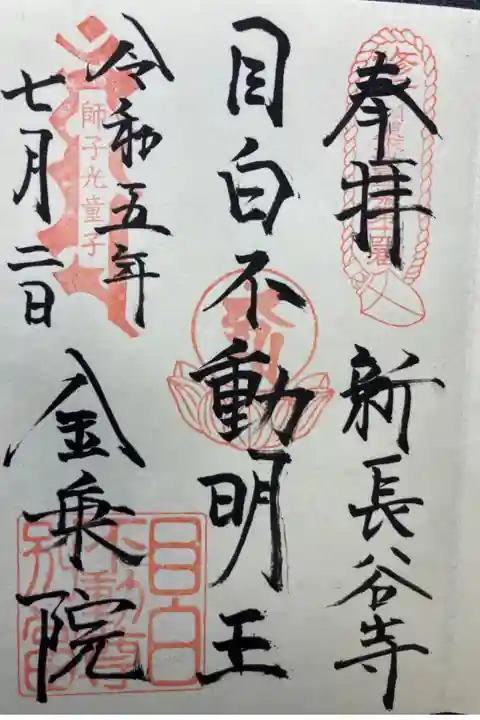 奉拝
新長谷寺
目白不動明王
令和五年
七月二日
金乗院
師子光童子
目白
不動尊
別當